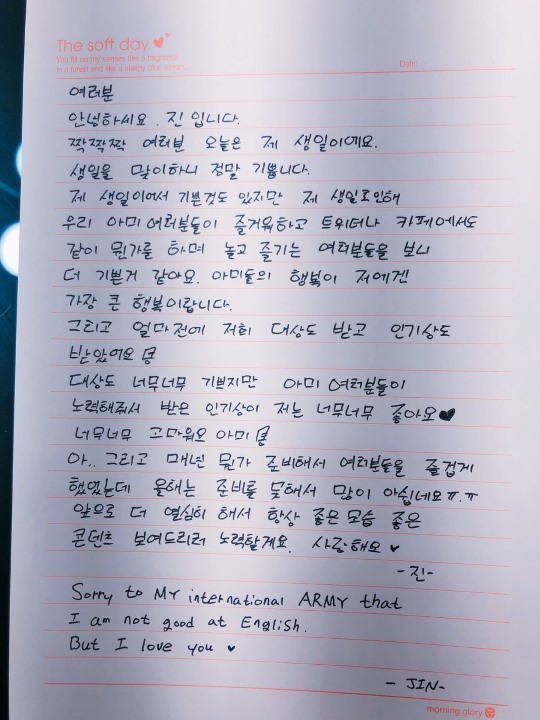 The soft day
You fill up my senses like a fragrance
In a forest and like a sleepy blue ocean.
Date:
여러분
안녕하세요. 진 입니다.
짝짝짝 여러분 오늘은 제 생일이에요.
생일을 맞이하니 정말 기쁩니다.
제 생일이여서 기쁜것도 있지만 제 생일로인해
우리 아미 여러분들이 즐거워하고 트위터나 카페에서도
같이 뭔가를 하며 놀고 즐기는 여러분들을 보니
더 기쁜거 같아요. 아미들의 행복이 저에겐
가장 큰 행복이랍니다.
그리고 얼마전에 저희 대상도 받고 인기상도
받았어요
대상도 너무너무 기쁘지만 아미 여러분들이
노력해줘서 받은 인기상이 저는 너무너무 좋아요♥
너무너무 고마워요 아미
아.. 그리고 매년 뭔가 준비해서 여러분들을 즐겁게
했었는데 올해는 준비를 못해서 많이 아쉽네요ㅠ.ㅠ
앞으로 더 열심히 해서 항상 좋은 모습 좋은
콘텐츠 보여드리려 노력할게요. 사랑해요 ♥
-진-
Sorry to MY international ARMY that
I am not good at English.
But I love you ♥
- JIN-
morning glory